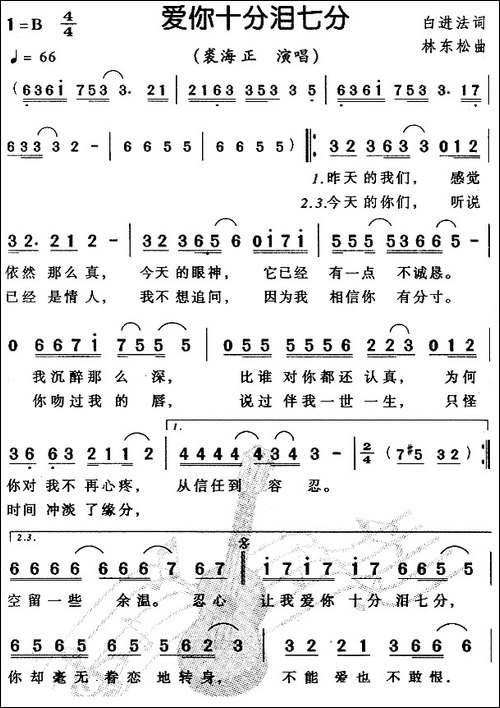 爱你十分泪七分
1=B 4/4 白进法词
♩=66 (裘海正 演唱) 林东松曲
(6361 753 3. 21 | 2163 353 3 5 | 6361 753 3. 17 |
633 3 32 - | 6 6 55 | 6 6 55) |: 32 363 3 012
1.昨天的我们, 感觉
2.3.今天的你们, 听说
32. 21 2 - | 32 365 6 0171 | 555 5366 5 |
依然 那么真, 今天的眼神, 它已经 有一点 不诚恳。
已经 是情人, 我不想追问, 因为我 相信你 有分寸。
0 6671 755 5 | 055 5556 223 3 012 |
我沉醉那么 深, 比谁 对你都还认真, 为何
你吻过我的 唇, 说过 伴我一世一生, 只怪
36 63 211 2 | 1. 4444 434 3 - | 2/4 (7#5 32) :|
你对 我不 再心疼, 从信任到 容 忍。
时间 冲淡 了缘分,
2.3.
6666 667 67 | 1717 1 665 5 |
空留一些 余温。 忍心 让我爱你 十分 泪七分,
6565 565 52 2 | 2121 366 6 |
你却毫无 眷恋 地转身, 不能 爱也 不敢恨。